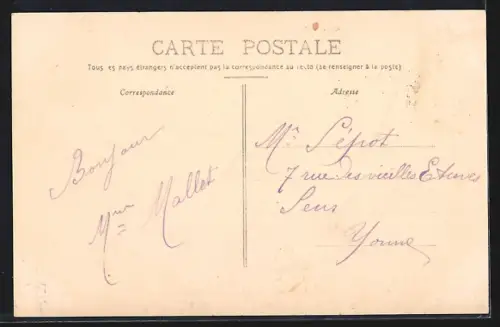 CARTE POSTALE
Tous les pays étrangers n'acceptent pas la correspondance au recto (se renseigner à la poste)
Correspondance
Adresse
Bonjour
Mme Mallet
Mr Pépot
7 rue des vieilles Etuves
Sens
Yonne